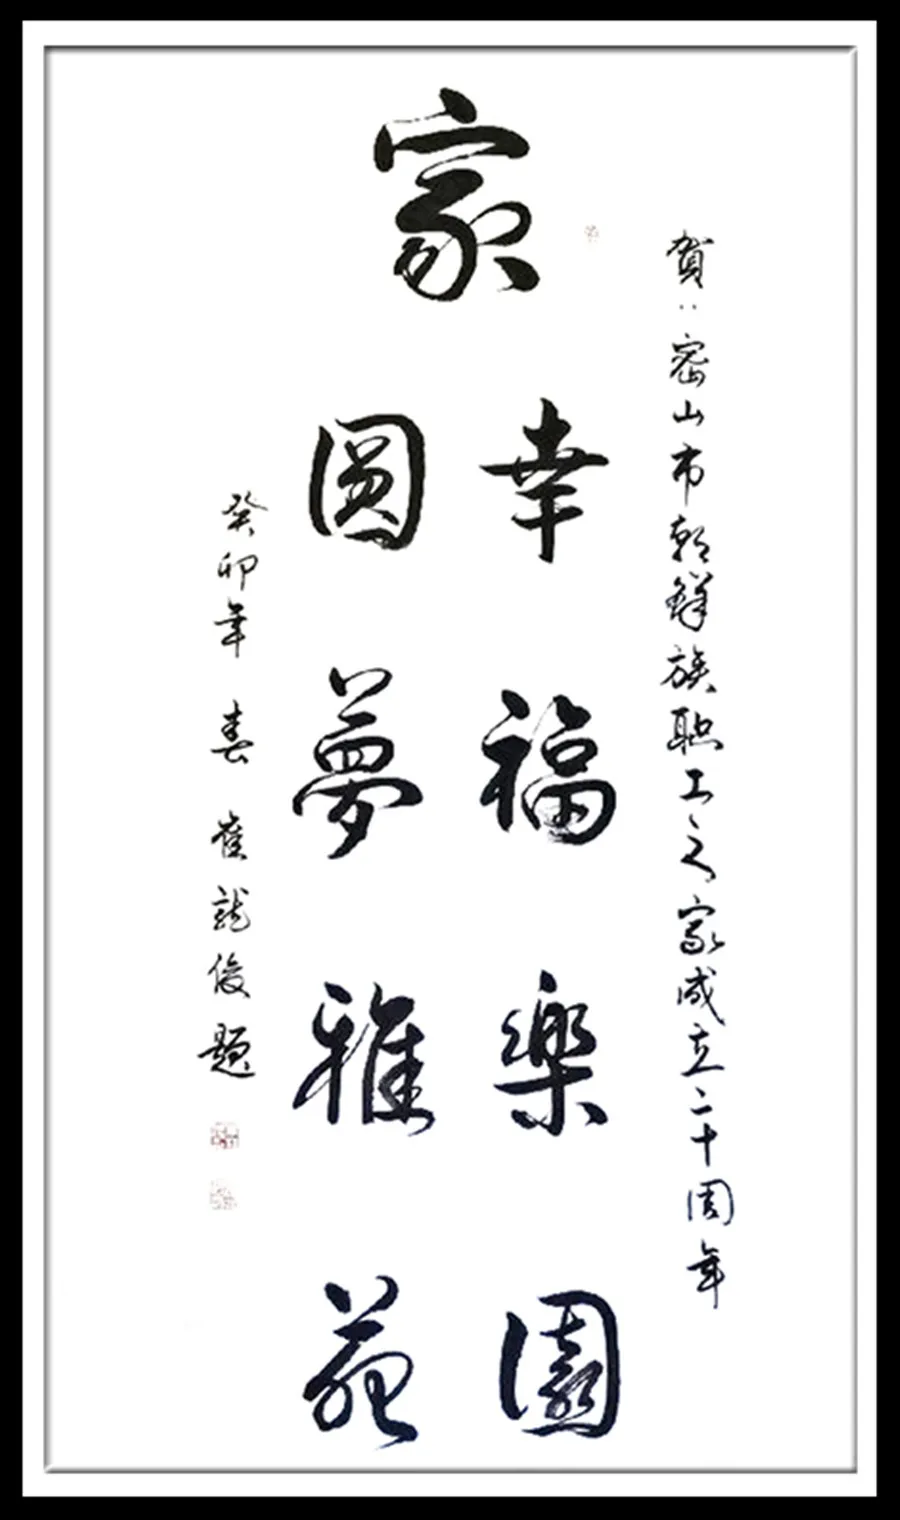 賀：密山市朝鲜族职工之家成立二十周年
家
幸福樂園
圆夢雅苑
癸卯年 春 崔龍俊題